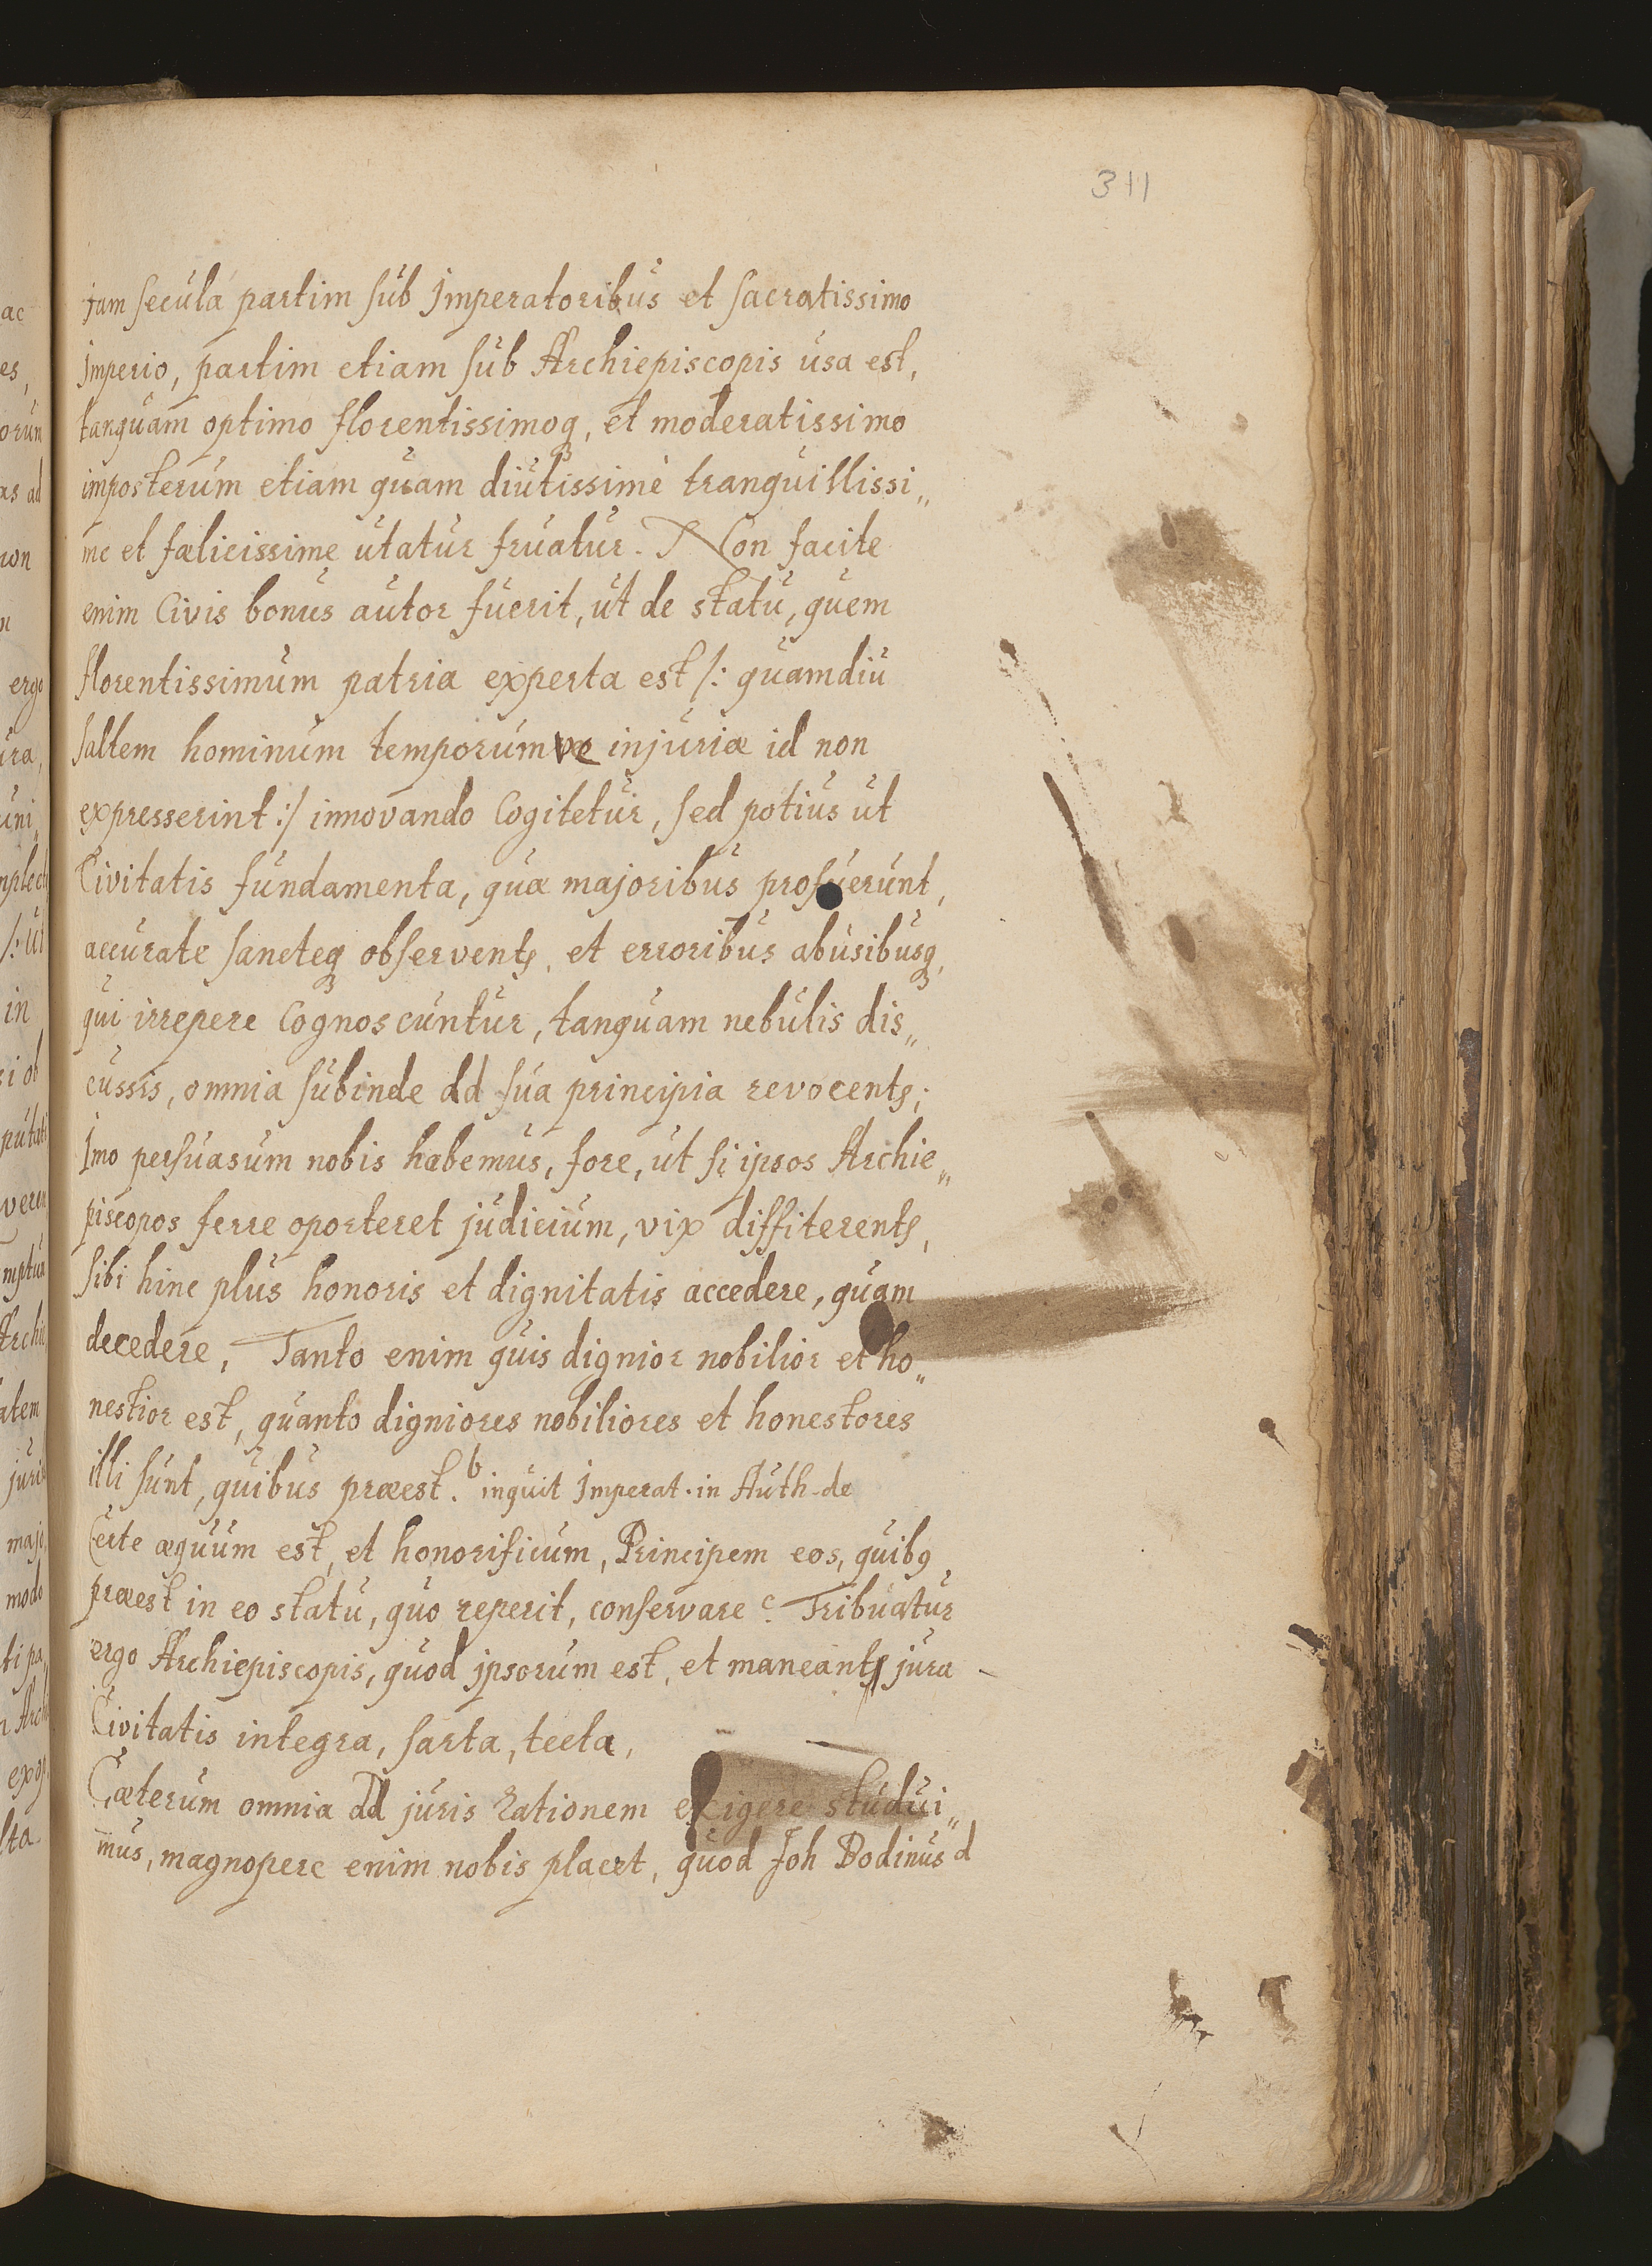 311
jam secula partim sub Imperatoribus et sacratissimo
Imperio, partim etiam sub Archiepiscopis usa est,
tanquam optimo florentissimoq, et moderatissimo
imposterum etiam quam diutissimè tranquillissi„
me et fœlicissime utatur fruatur. Non facile
enim Civis bonus autor fuerit, ut de statu, quem
florentissimum patria experta est /: quamdiu
saltem hominum temporumve injuriæ id non
expresserint :/ innovando Cogitetur, sed potius ut
Civitatis fundamenta, quæ majoribus profuerunt,
accurate sancteq observentr, et erroribus abusibusq,
qui irrepere Cognoscuntur, tanquam nebulis dis„
cussis, omnia subinde ad sua principia revocentr;
Imo persuasum nobis habemus, fore, ut si ipsos Archie„
piscopos ferre oporteret judicium, vix diffiterentr,
sibi hinc plus honoris et dignitatis accedere, quam
decedere, Tanto enim quis dignior nobilior et ho„
nestior est, quanto digniores nobiliores et honestores
illi sunt, quibus præest. b inquit Imperat. in Auth. de
Certe æquum est, et honorificum, Principem eos, quibq
præest in eo statu, quo reperit, conservare c. Tribuatur
ergo Archiepiscopis, quod ipsorum est, et maneantr jura
Civitatis integra, sarta, tecta,
Cæterum omnia ad juris rationem exigere studui„
mus, magnopere enim nobis placet, quod Joh Bodinus d
ac
es,
orum
as ad
non
ergo
ura,
uni„
/: ut
in
si ob
Archie
atem
juris
modo
lta